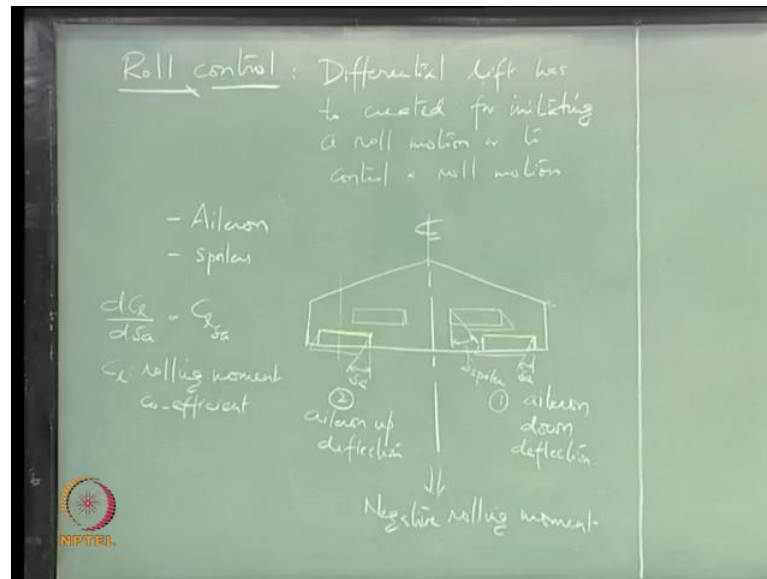 Roll control : Differential lift has
to created for initiating
a roll motion or to
control a roll motion.
- Aileron
- Spoilers
℄
dCl/dδa = Clδa
Cl: rolling moment
co-efficient
δa
δspoiler
δa
② aileron up
deflection
① aileron
down
deflection
⇓
Negative rolling moment
NPTEL